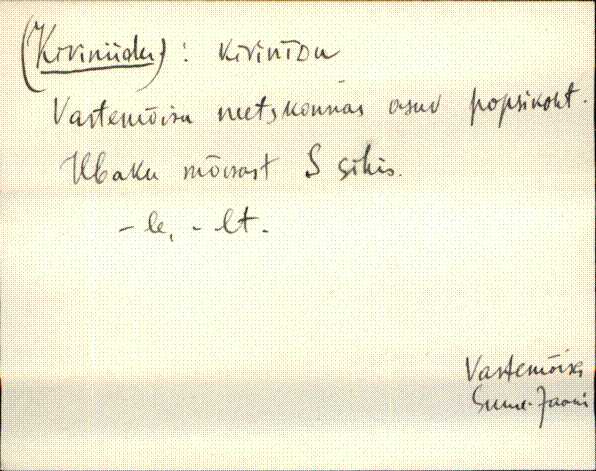 (Kiriniidu) : kirinīdu
Vastemõisa metskonnas asuv popsikoht.
Ubaku mõisast S sihis.
-le, -lt.
Vastemõisa
Suure-Jaani